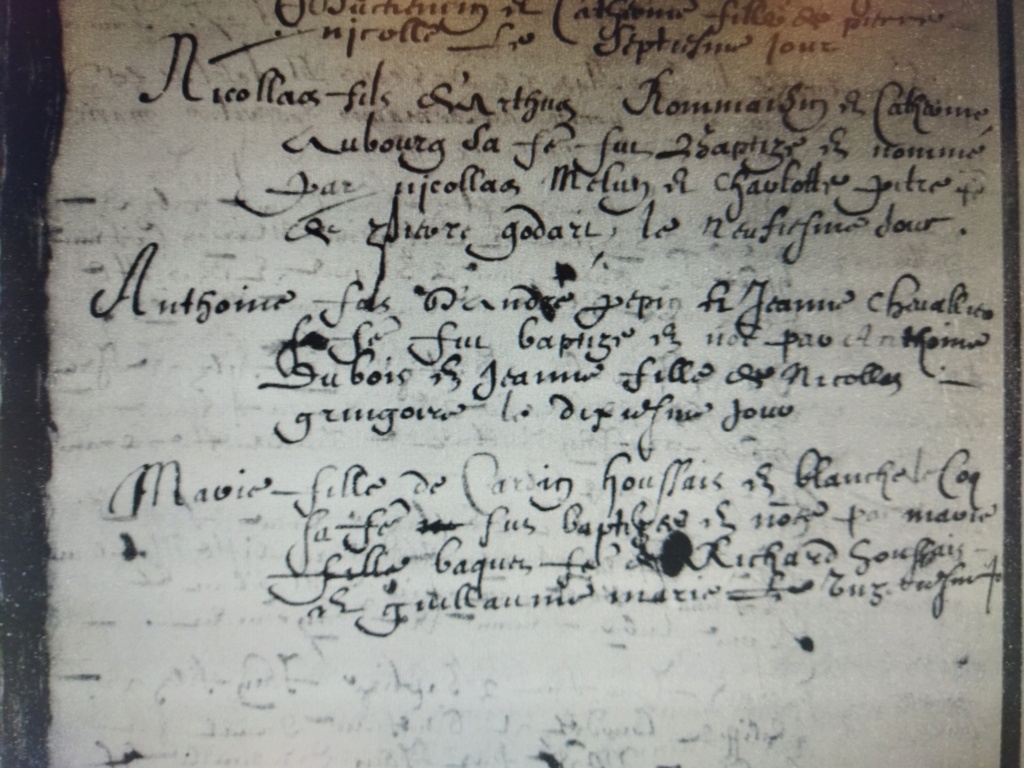 et Catherine fille de pierre
nicolle le septiesme jour
Nicollas fils d'Arthus Rommaisin et Catherine
Aubourg sa fe fut Baptize et nomme
par nicollas Melun et charlotte pitre fe
de pierre godart le neufiesme jour .
Anthoine fils d'Andre pepin et Jeanne chevallier
sa fe fut baptize et noe par Anthoine
Dubois et Jeanne fille de Nicollas
gringoire le dixiesme jour
Marie fille de Cardin houssais et blanche le Coq
sa fe fut baptizee et noee par marie
fille baquet fe de Richard houssais
et guillaume marie le unziesme